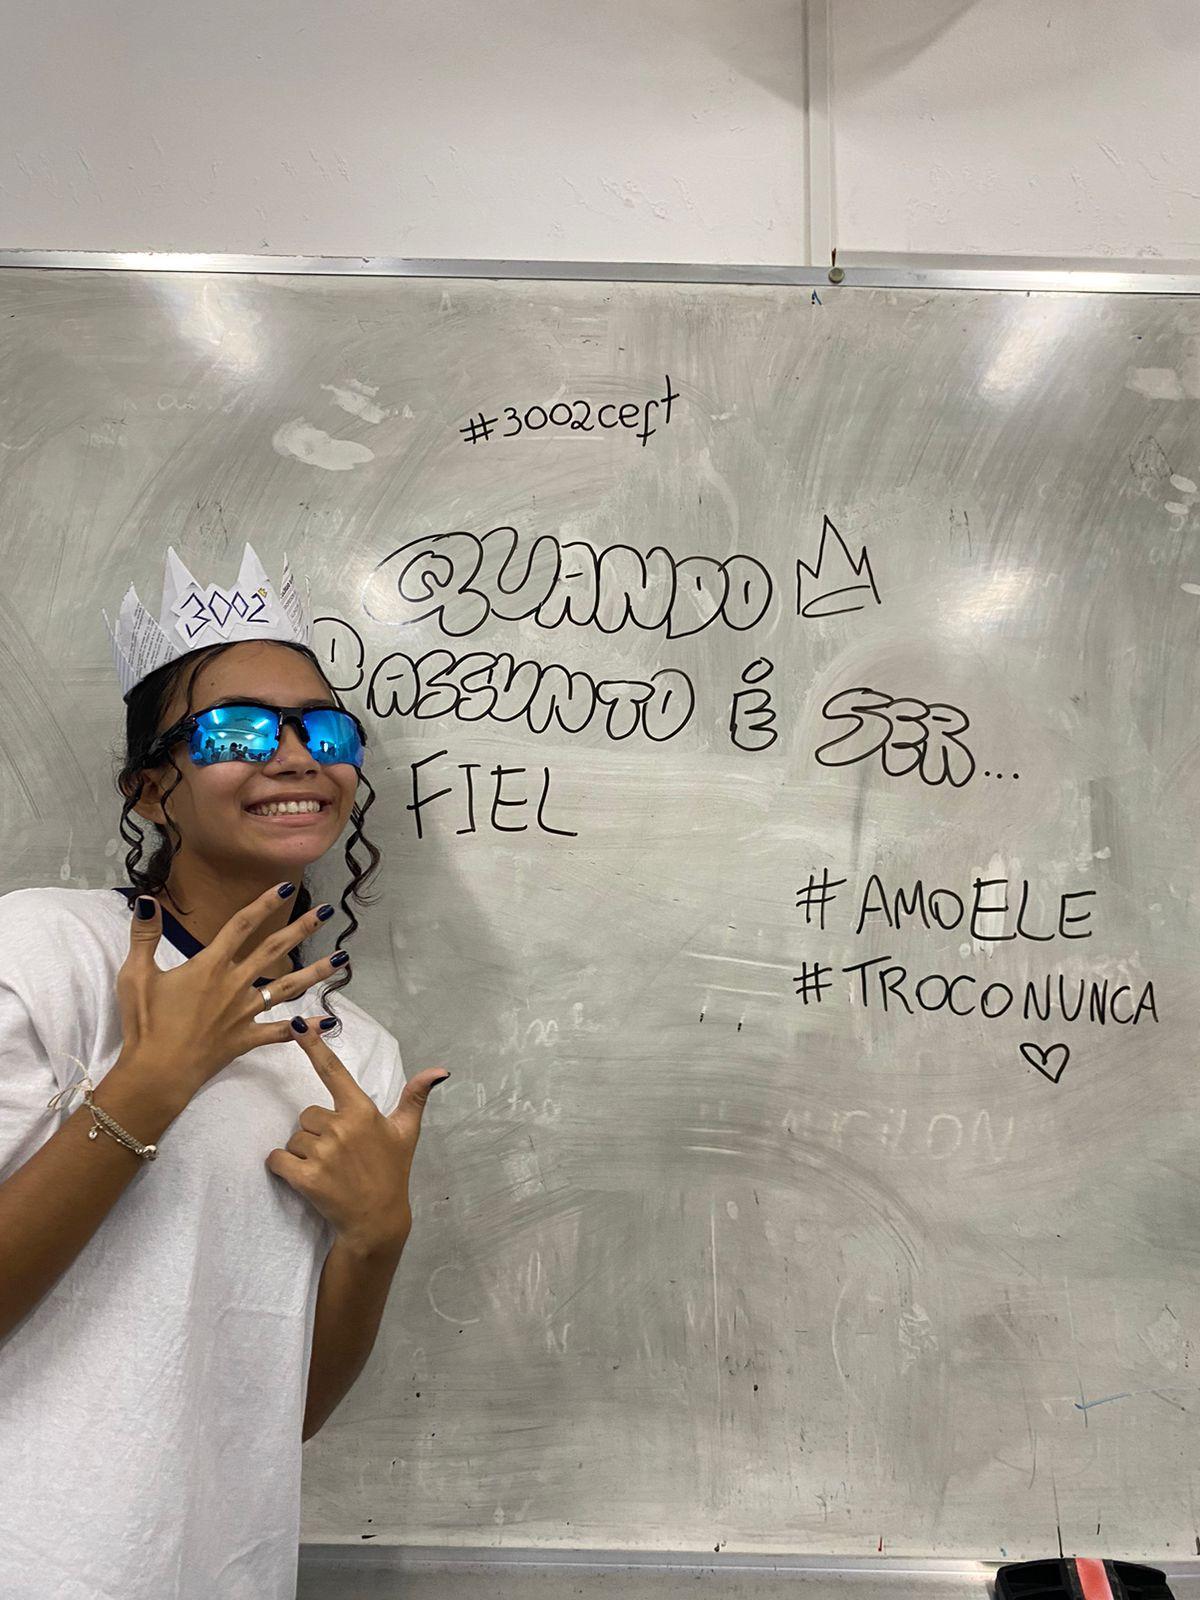 #3002ceft
QUANDO
O ASSUNTO É SER...
FIEL
3002
#AMOELE
#TROCONUNCA